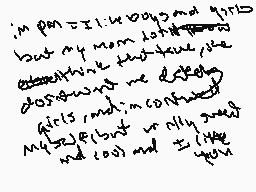 im pan = I like boys and girls
but my mom
think that true, she
doesn't want me dating
girls and im confused
myself, but ur rlly sweet
and cool and I like
you